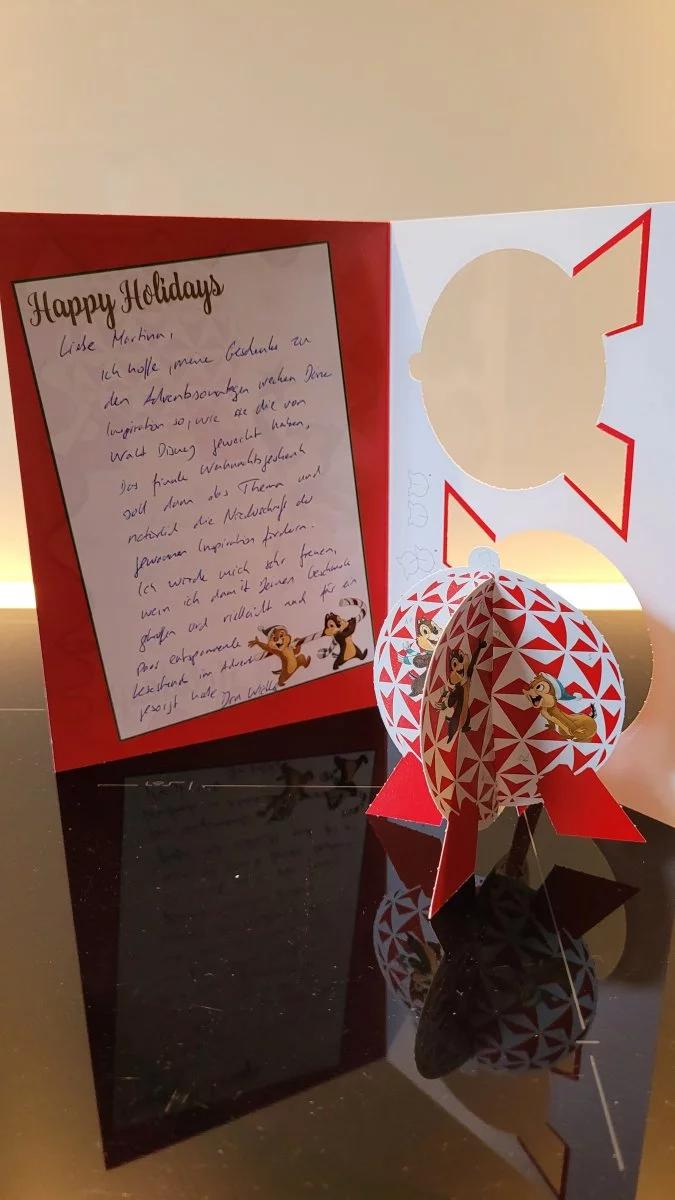 Happy Holidays
Liebe Martina,
ich hoffe, meine Geschenke zu
den Adventssonntagen wecken Deine
Inspiration so, wie sie die von
Walt Disney geweckt haben.
Das finale Weihnachtsgeschenk
soll dann das Thema und
natürlich die Niederschrift der
gewonnenen Inspiration fördern.
Ich würde mich sehr freuen,
wenn ich damit Deinen Geschmack
getroffen und vielleicht auch für ein
paar entspannende
im Advent
gesorgt habe. Dein